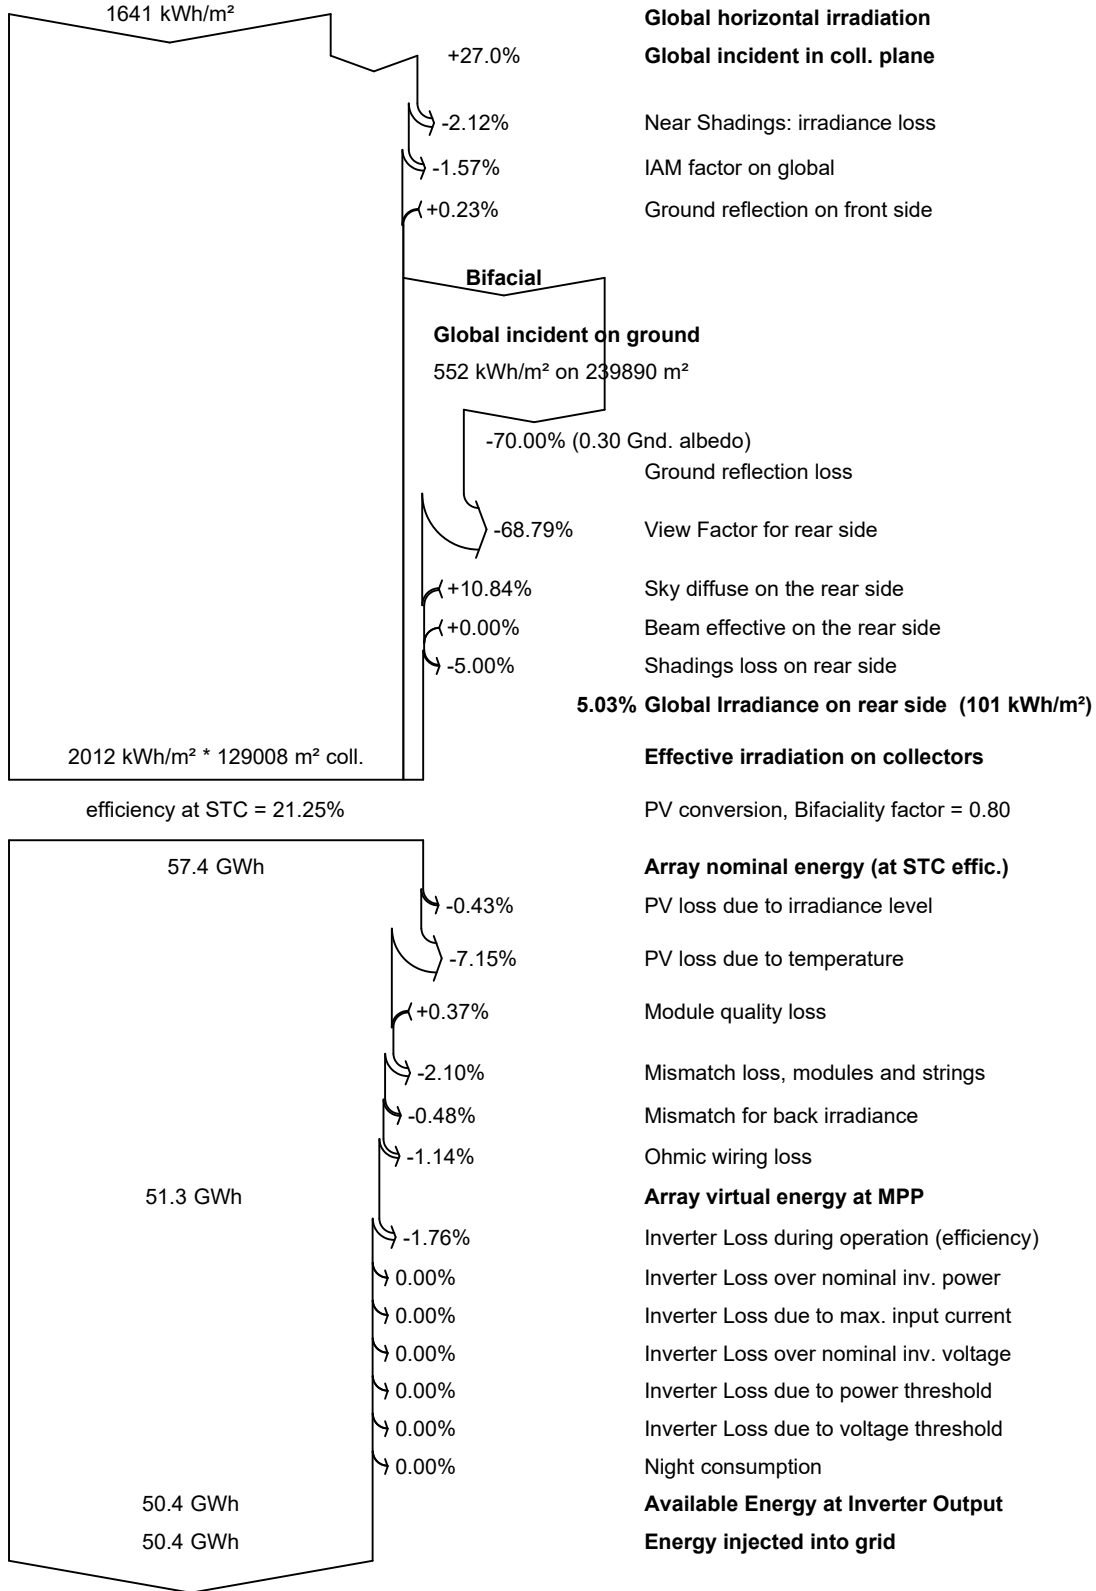 1641 kWh/m² Global horizontal irradiation
+27.0% Global incident in coll. plane
-2.12% Near Shadings: irradiance loss
-1.57% IAM factor on global
+0.23% Ground reflection on front side
Bifacial
Global incident on ground
552 kWh/m² on 239890 m²
-70.00% (0.30 Gnd. albedo)
Ground reflection loss
-68.79% View Factor for rear side
+10.84% Sky diffuse on the rear side
+0.00% Beam effective on the rear side
-5.00% Shadings loss on rear side
5.03% Global Irradiance on rear side (101 kWh/m²)
2012 kWh/m² * 129008 m² coll. Effective irradiation on collectors
efficiency at STC = 21.25% PV conversion, Bifaciality factor = 0.80
57.4 GWh Array nominal energy (at STC effic.)
-0.43% PV loss due to irradiance level
-7.15% PV loss due to temperature
+0.37% Module quality loss
-2.10% Mismatch loss, modules and strings
-0.48% Mismatch for back irradiance
-1.14% Ohmic wiring loss
51.3 GWh Array virtual energy at MPP
-1.76% Inverter Loss during operation (efficiency)
0.00% Inverter Loss over nominal inv. power
0.00% Inverter Loss due to max. input current
0.00% Inverter Loss over nominal inv. voltage
0.00% Inverter Loss due to power threshold
0.00% Inverter Loss due to voltage threshold
0.00% Night consumption
50.4 GWh Available Energy at Inverter Output
50.4 GWh Energy injected into grid